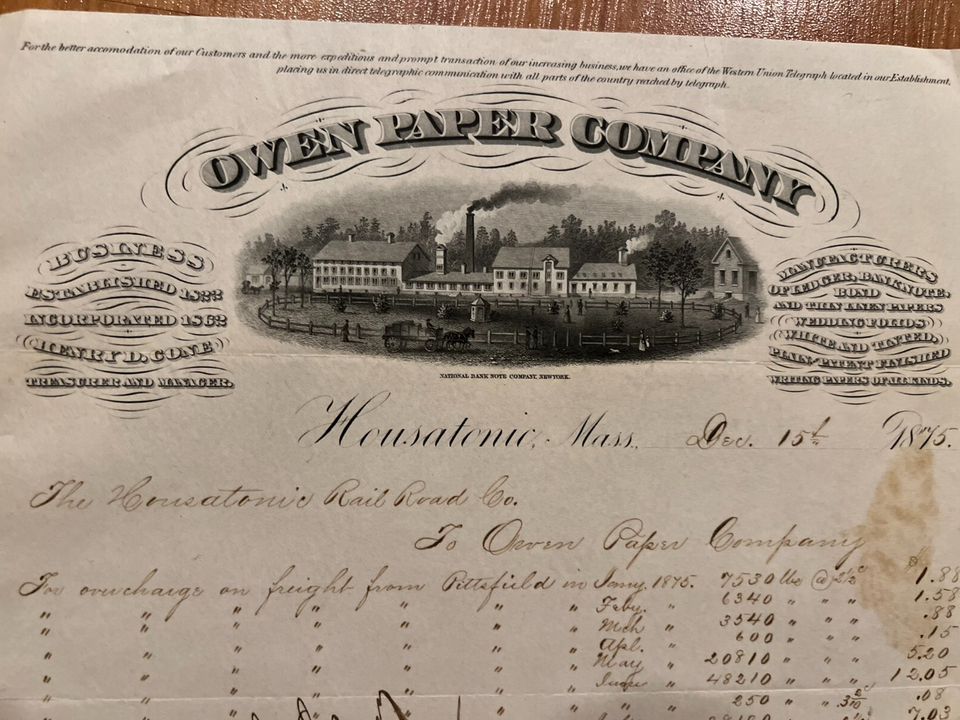 For the better accomodation of our Customers and the more expeditious and prompt transaction of our increasing business, we have an office of the Western Union Telegraph located in our Establishment,
placing us in direct telegraphic communication with all parts of the country reached by telegraph.
OWEN PAPER COMPANY
BUSINESS
ESTABLISHED 1822
INCORPORATED 1862
HENRY D. CONE
TREASURER AND MANAGER.
MANUFACTURERS
OF LEDGER, BANK NOTE,
BOND
AND THIN LINEN PAPERS
WEDDING FOLIOS
WHITE AND TINTED,
PLAIN AND PATENT FINISHED
WRITING PAPERS OF ALL KINDS.
NATIONAL BANK NOTE COMPANY, NEW YORK.
Housatonic, Mass. Dec. 15th 1875.
The Housatonic Rail Road Co.
To Owen Paper Company
For overcharge on freight from Pittsfield in Jany. 1875. 7530 lbs @ $ 1.88
" " " " " " Feby. " 6340 " " " 1.58
" " " " " " Mch " 3540 " " " .88
" " " " " " Apl. " 600 " " " .15
" " " " " " May " 20810 " " " 5.20
" " " " " " June " 48210 " " " 12.05
" " " " " " " 250 " " .08
7.03